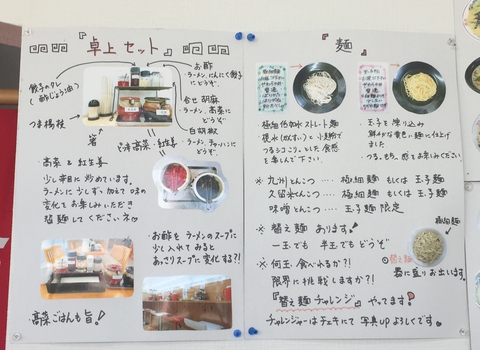 『卓上セット』
餃子のタレ
(酢じょうゆ)
つま楊枝
箸
お酢
・ラーメン、にんにく餃子
にどうぞ
白胡麻
・ラーメン、高菜に
どうぞ
白胡椒
・ラーメン、チャーハンに
どうぞ
高菜、紅生姜
・高菜&紅生姜
少し辛目に炒めています。
ラーメンに少しずつ加えて味の
変化をお楽しみいただき
替麺してくださいネ
・お酢をラーメンのスープに
少し入れてみると
あっさりスープに変化する?!
高菜ごはんも旨!
『麺』
極細低加水ストレート麺
・玉子を練り込み
鮮やかな黄色い麺に仕上げ
ました
・つるもち感をお楽しみください
を楽しんで下さい。
※九州とんこつ‥‥極細麺もしくは玉子麺
久留米とんこつ‥‥極細麺もしくは玉子麺
味噌とんこつ‥‥玉子麺限定
※替え麺あります!
一玉でも半玉でもどうぞ
極細麺
※何玉食べれるか?!
限界に挑戦しますか?!
◎替え麺
器に盛りお出します。
『替え麺チャレンジ』やってます!
チャレンジャーはチェキにて写真UPよろしくです。